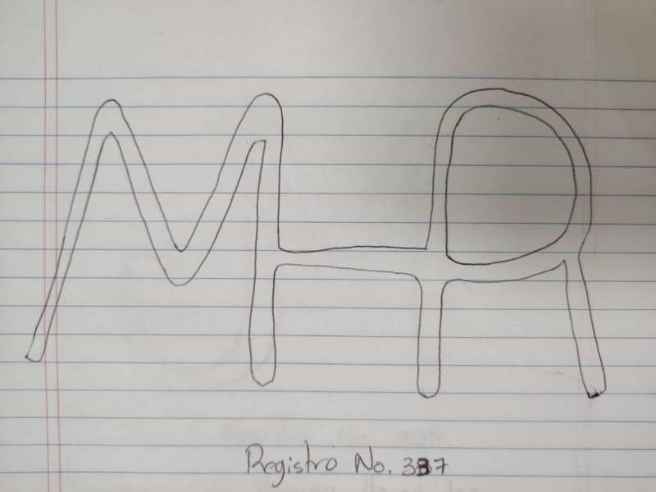 MHR
Registro No. 387